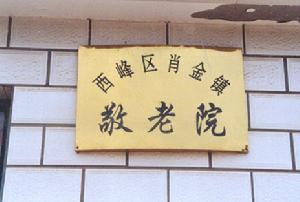 西峰区肖金镇
敬老院